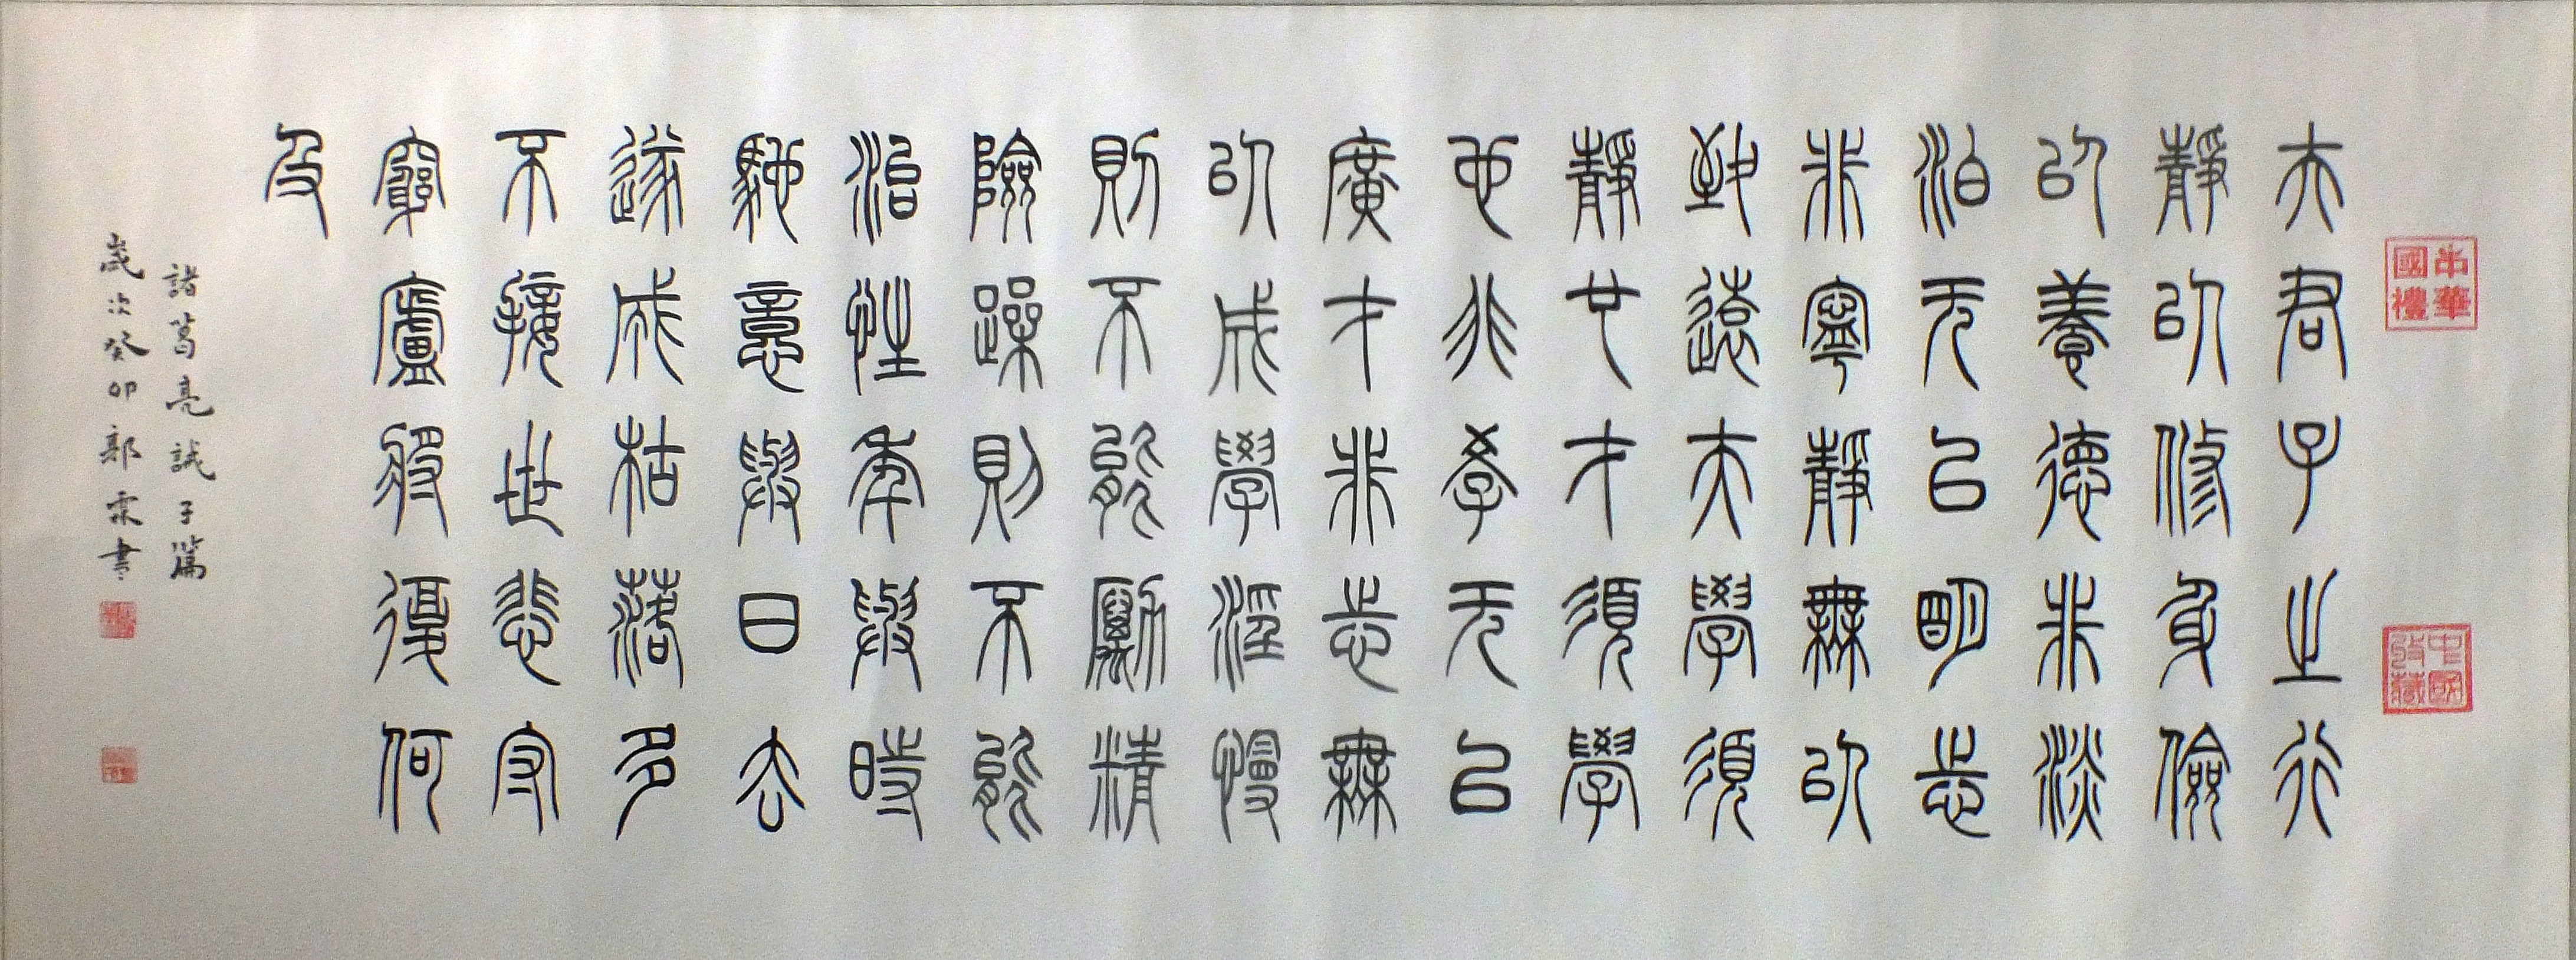 中華國禮
中國收藏
夫君子之行
靜以修身儉
以養德非淡
泊无以明志
非寧靜無以
致遠夫學須
靜也才須學
也非學无以
廣才非志無
以成學淫慢
則不能勵精
險躁則不能
治性年與時
馳意與日去
遂成枯落多
不接世悲守
窮廬將復何
及
諸葛亮誡子篇
歲次癸卯郭書